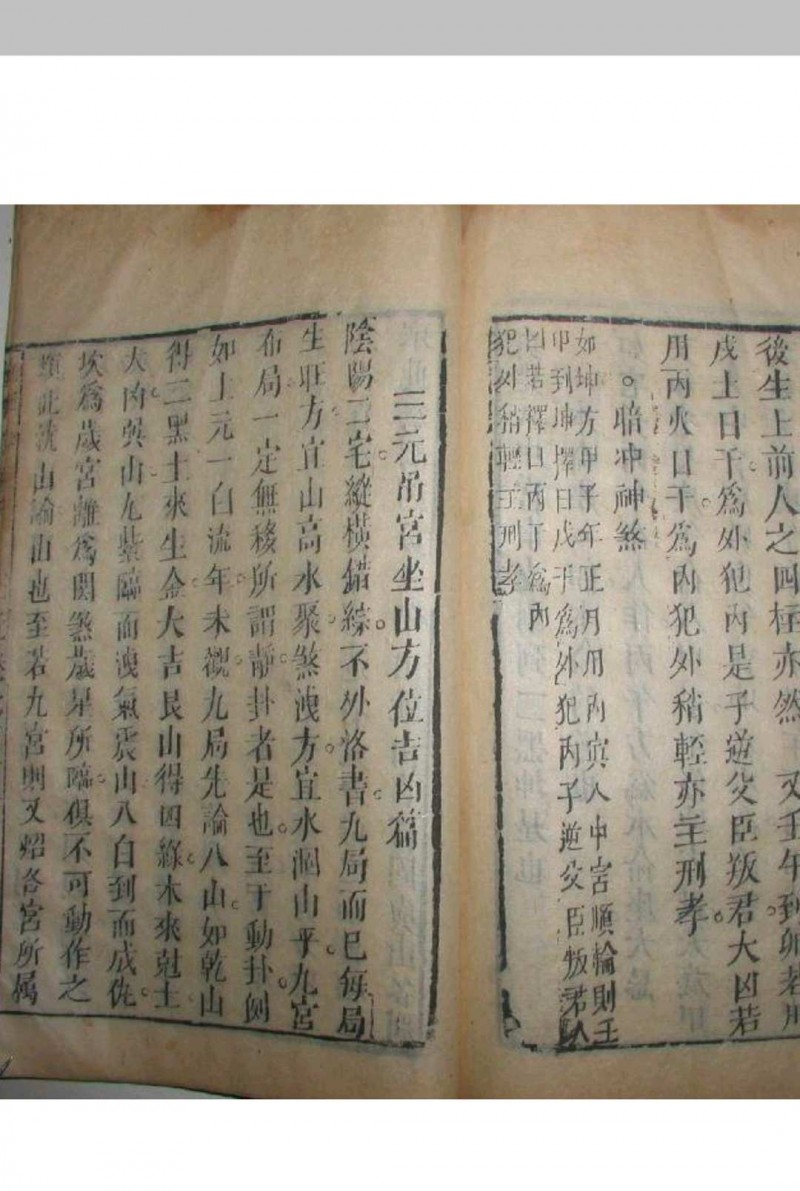 後生上前人之四柱亦然 又壬午到
戊土日干爲外犯內是子逆父臣叛君大凶若
用丙火日干爲內犯外稍輕亦主刑孝
暗冲神煞
如坤方甲子年正月用丙寅入中宮順輪則壬
申到坤擇日戊干爲外犯內子逆父臣叛君
凶若擇日丙丁爲內
犯外稍輕主刑孝
三元吊宮坐山方位吉凶篇
陰陽二宅縱橫錯綜不外洛書九局而已每局
生旺方宜山高水聚煞洩方宜水涸山平九宮
布局一定無移所謂靜卦者是也至于動卦例
如上元一白流年未觀九局先論八山如乾山
得二黑土來生金大吉艮山得四綠木來尅土
大凶巽山九紫臨而洩氣震山八白到而成仇
坎爲歲宮離爲関煞歲星所臨俱不可動作之
類此就山論山也至若九宮則又炤各宮所属